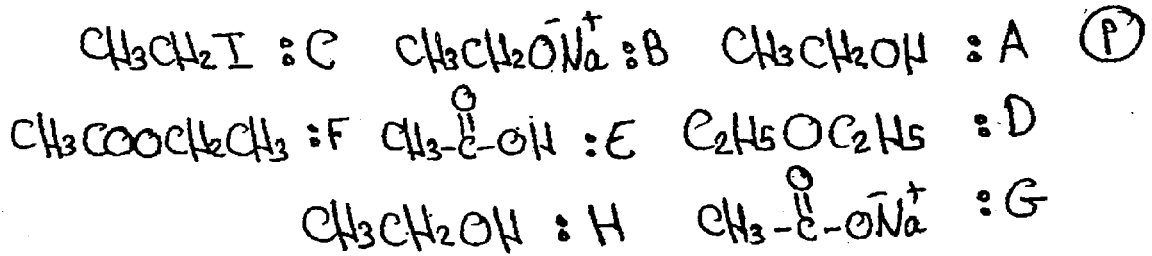 CH₃CH₂I : C CH₃CH₂O⁻Na⁺ : B CH₃CH₂OH : A Ⓟ
CH₃COOCH₂CH₃ : F CH₃-C(=O)-OH : E C₂H₅OC₂H₅ : D
CH₃CH₂OH : H CH₃-C(=O)-O⁻Na⁺ : G